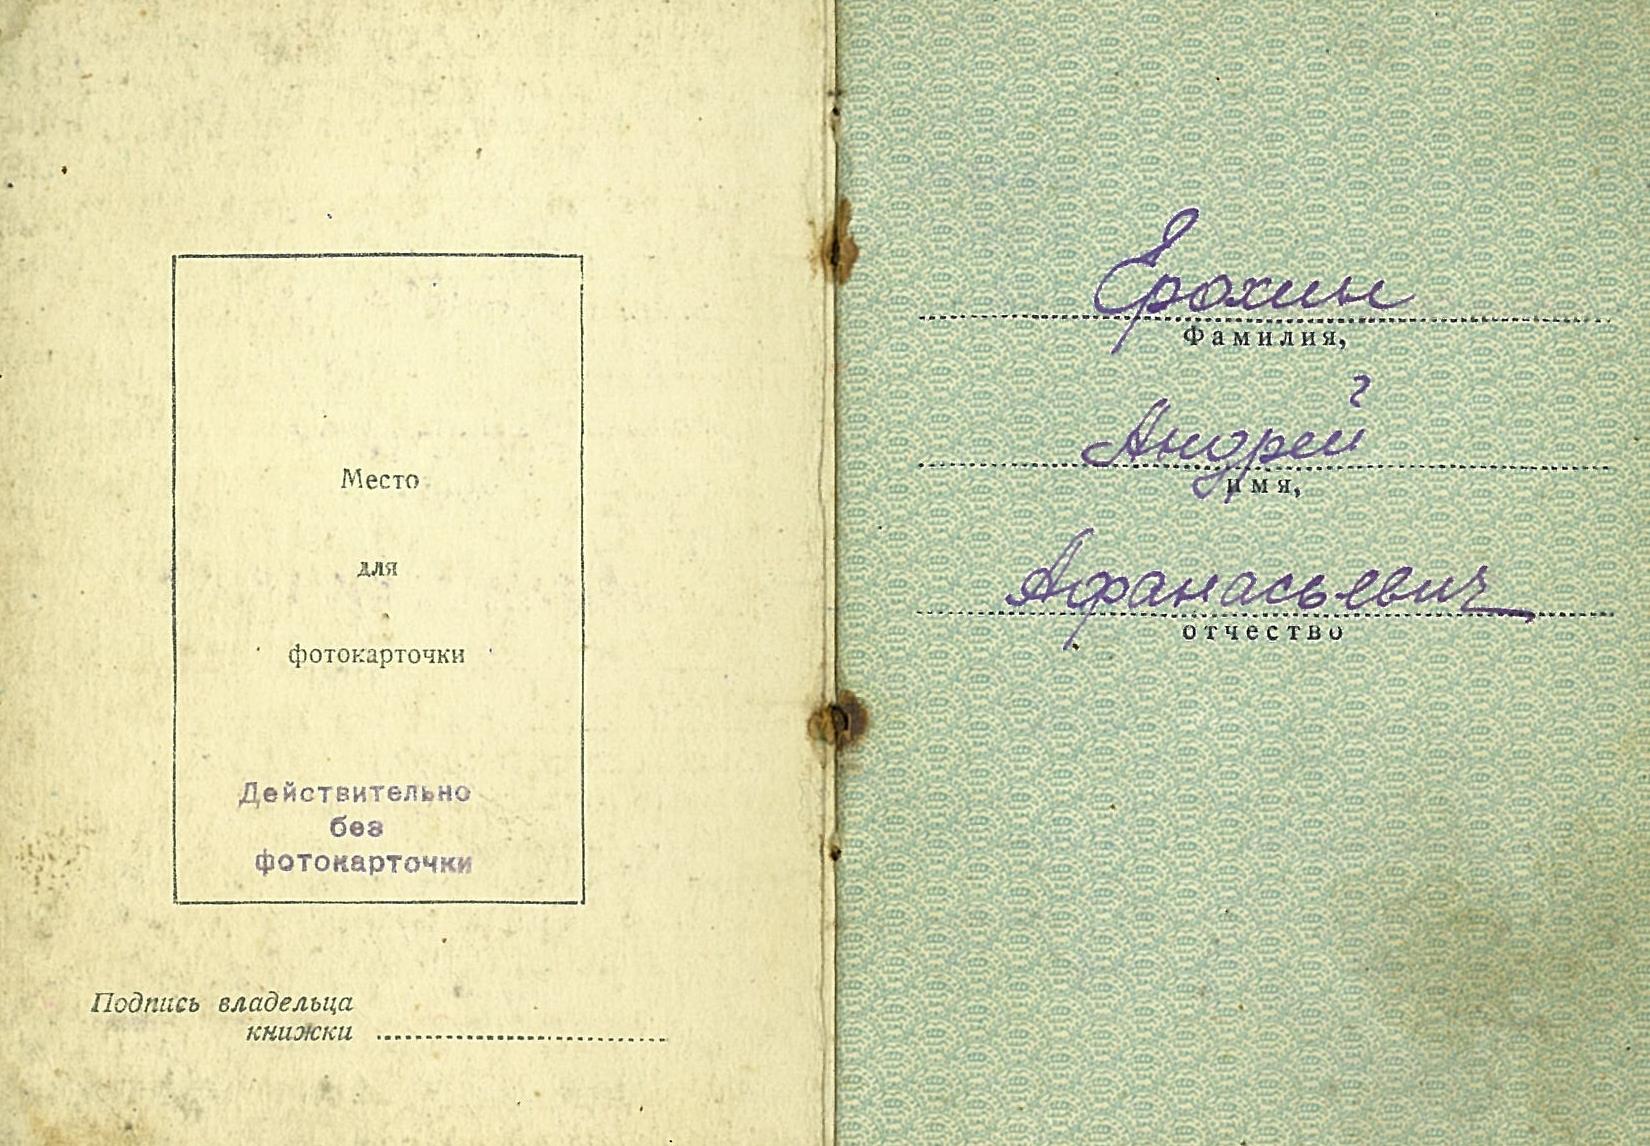 Место
для
фотокарточки
Действительно
без
фотокарточки
Подпись владельца
книжки
Ерохин
Фамилия,
Андрей
имя,
Афанасьевич
отчество